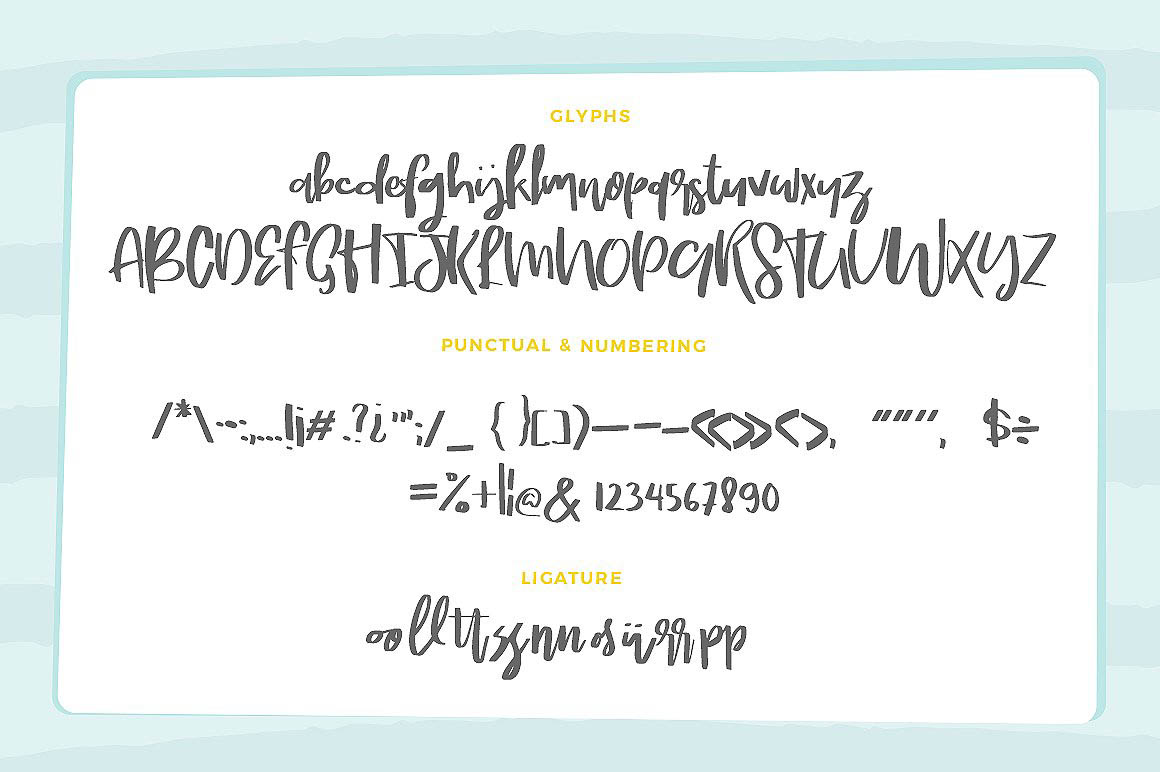 GLYPHS
abcdefghijklmnopqrstuvwxyz
ABCDEFGHIJKLMNOPQRSTUVWXYZ
PUNCTUAL & NUMBERING
/*\-·:,...!¡#.?¿"';/_{}[])—–-«‹›»‹›, """", $÷
=%+|¦@& 1234567890
LIGATURE
oo ll tt ss nn os ii rr pp